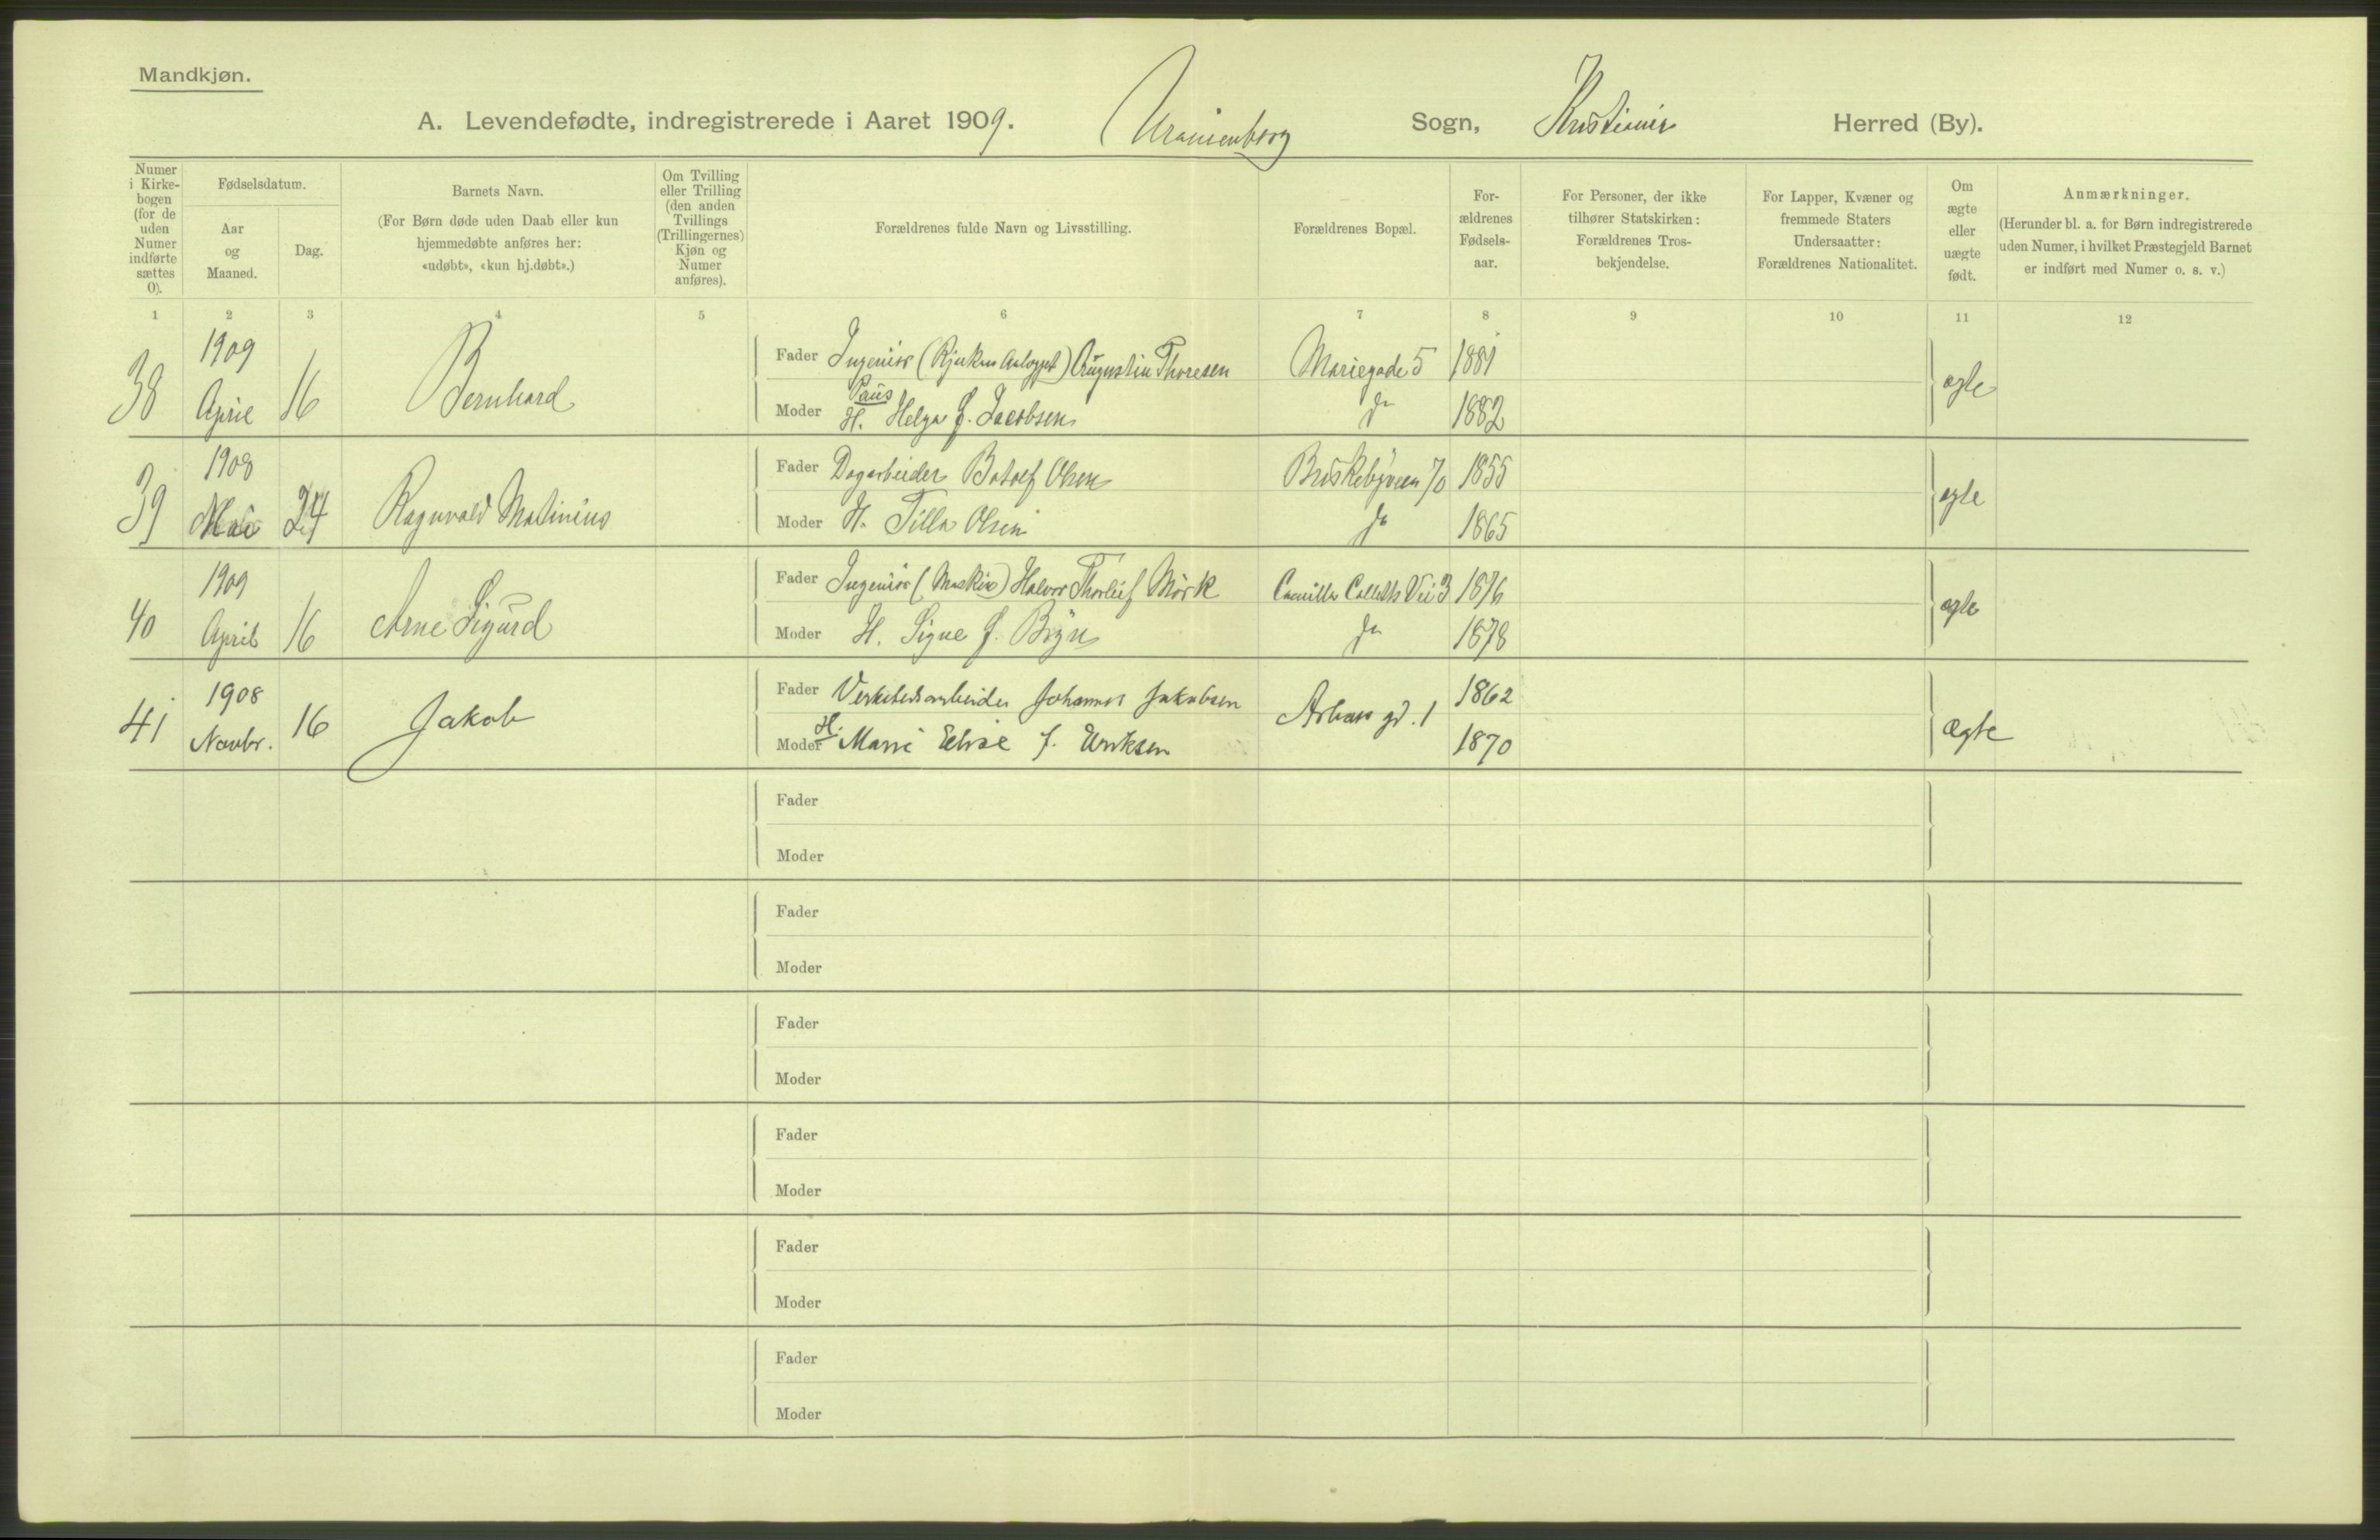 Mandkjøn.
A. Levendefødte, indregistrerede i Aaret 1909. Uranienborg Sogn, Kristiania Herred (By).
Numer i Kirke-bogen (for de uden Numer indførte sættes 0).
Fødselsdatum.
Aar og Maaned.
Dag.
Barnets Navn.
(For Børn døde uden Daab eller kun hjemmedøbte anføres her: «udøbt», «kun hj.døbt».)
Om Tvilling eller Trilling (den anden Tvillings (Trillingernes) Kjøn og Numer anføres).
Forældrenes fulde Navn og Livsstilling.
Forældrenes Bopæl.
For-ældrenes Fødsels-aar.
For Personer, der ikke tilhører Statskirken: Forældrenes Tros-bekjendelse.
For Lapper, Kvæner og fremmede Staters Undersaatter: Forældrenes Nationalitet.
Om ægte eller uægte født.
Anmærkninger.
(Herunder bl. a. for Børn indregistrerede uden Numer, i hvilket Præstegjeld Barnet er indført med Numer o. s. v.)
1 2 3 4 5 6 7 8 9 10 11 12
38 1909 April 16 Bernhard
Fader Ingeniør (Rjukan Anlægget) Augustin Thoresen Paus Mariegade 5 1881
Moder H. Helga f. Jacobsen do 1882
ægte
39 1908 Mai 24 Ragnvald Matinius
Fader Dagarbeider Botolf Olsen Briskebyveien 70 1855
Moder H. Tilla Olsen do 1865
ægte
40 1909 April 16 Arne Sigurd
Fader Ingeniør (Maskin) Halvor Thorleif Mörk Camilla Colletts Vei 3 1876
Moder H. Signe f. Bryn do 1878
ægte
41 1908 Novbr. 16 Jakob
Fader Verkstedsarbeider Johannes Jakobsen gd. 1 1862
Moder H. Marie Elise f. Eriksen 1870
ægte
Fader
Moder
Fader
Moder
Fader
Moder
Fader
Moder
Fader
Moder
Fader
Moder